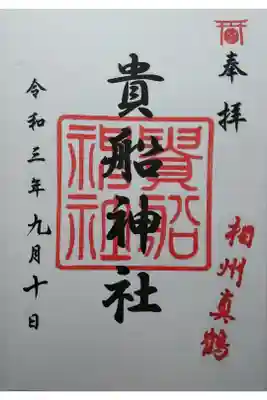 奉拝
相州真鶴
貴船神社
貴船神社
令和三年九月十日